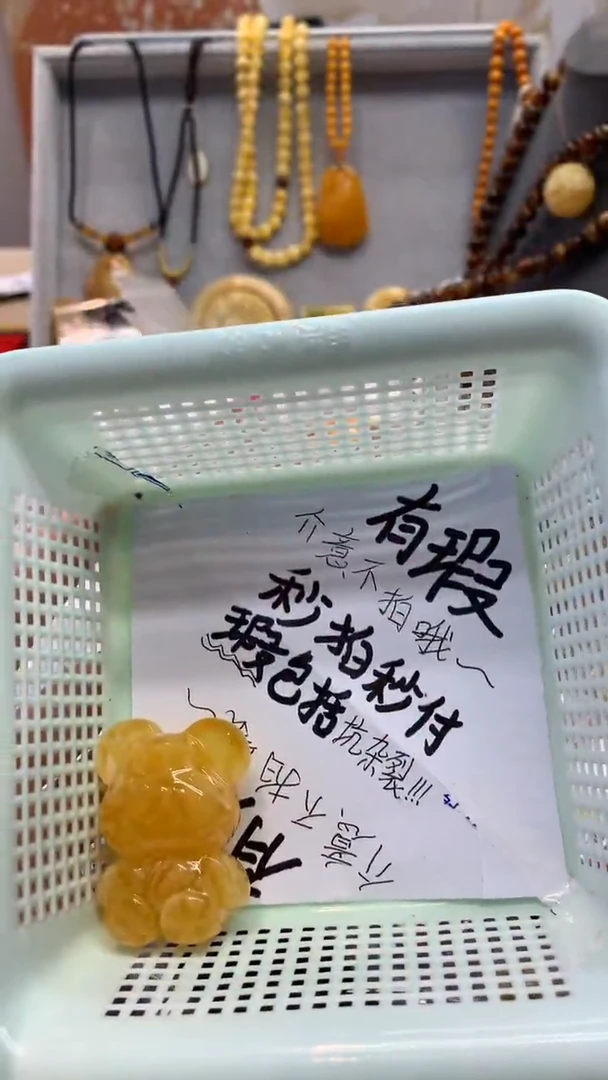 有瑕
介意不拍哦~
秒拍秒付
瑕包括坑杂裂!!!
介意不拍
有